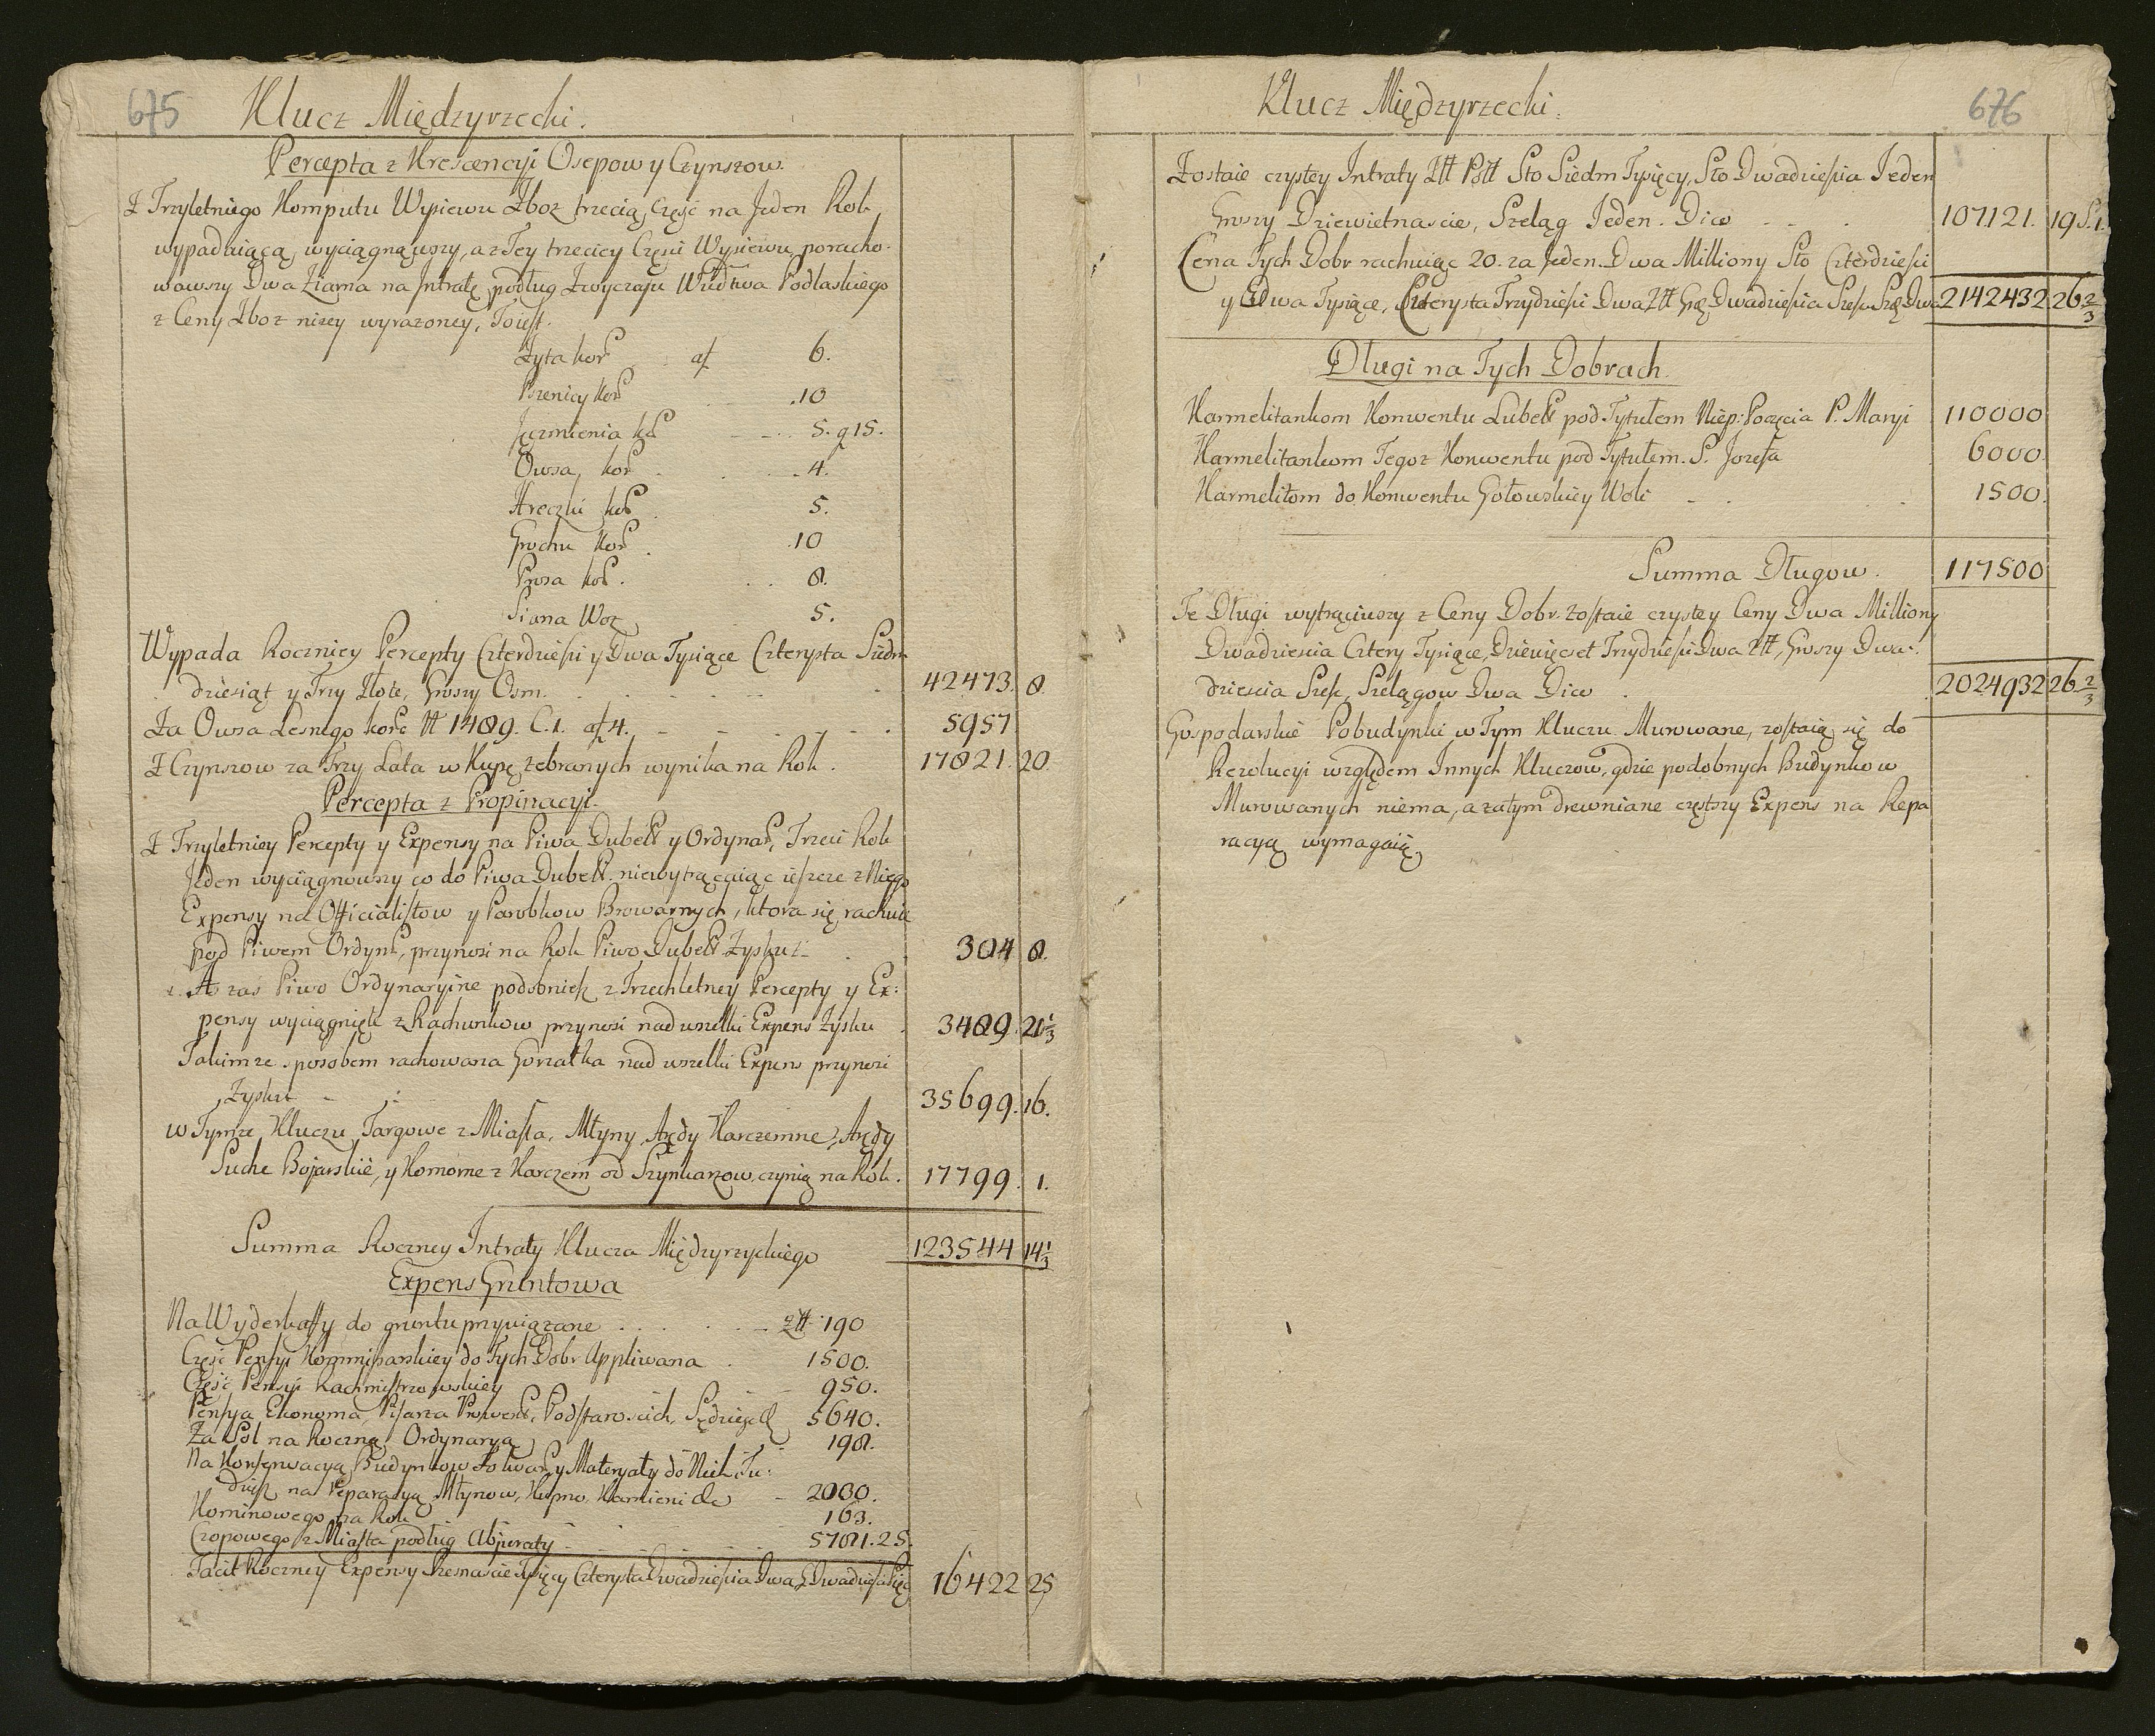 675
Klucz Międzyrzecki.
Percepta z Krescencyi Osepow y Czynszow.
Z Trzyletniego Komputu Wysiewu Zboz trzecią Częsć na Jeden Rok
wypadaiącą wyciągnąwszy, a z Tey trzeciey Części Wysiewu poracho-
wawszy Dwa Ziarna na Intratę podług Zwyczaiu Wudztwa Podlaskiego
z Ceny Zboz nizey wyrazoney, Toiest.
Zyta kor af 6.
Pszenicy Kor 10
Jęczmienia kor 5. g 15.
Owsa, kor 4.
Hreczki kor 5.
Grochu Kor 10
Prosa kor. 8.
Siana Woz 5.
Wypada Roczniey Percepty Czterdziesci y Dwa Tysiące Czterysta Siedm
dziesiąt y Trzy Złote, Groszy Osm. 42473. 8.
Za Owsa Lesnego kore # 1489. C.1. af 4. 5957
Z Czynszow za Trzy Lata w Kupę zebranych wynika na Rok. 17821. 20.
Percepta z Propinacyi.
Z Trzyletniey Percepty y Expensy na Piwa Dubelt y Ordynar, Trzeci Rok
Jeden wyciągnowszy co do Piwa Dubelt. niewytrącaiąc ieszcze z Niego
Expensy na Officialistow y Parobkow Browarnych, ktora się rachuie
pod Piwem Ordyn, przynosi na Rok Piwo Dubelt Zysku: 304 8.
A zas Piwo Ordynaryine podobniesz z Trzechletney Percepty y Ex:
pensy wyciągnięte z Rachunkow przynosi nad wszelki Expens Zysku 3489. 21 1/3
Takimze sposobem rachowana Gorzałka nad wszelki Expens przynosi
Zysku 35699. 16.
w Tymze Kluczu Targowe z Miasta, Młyny Arędy Karczemne, Arędy
Suche Bojarskie, y Komorne z Karczem od Szynkarzow, czynią na Rok. 17799. 1.
Summa Roczney Intraty Klucza Międzyrzyckiego 123544 14 1/3
Expens Gruntowa
Na Wyderkaffy do gruntu przywiązane Z# 190
Częsć Pensyi Kommissarskiey do Tych Dobr Applikowana 1500.
Częsć Pensyi Rachmistrzowskiey 950.
Pensya Ekonoma, Pisarza Prowent, Podstaroscich, Sędziego & 5640.
Za Sol na Roczną Ordynaryą 198.
Na Konserwacyą Budynkow Folwar y Materyały do Nich Tu:
dziesz na Reparacyą Młynow, Kupno Kamieni & 2000.
Kominowego na Rok 163.
Czopowego z Miasta podług Abjuraty 5781. 25.
Facit Roczney Expensy Szesnascie Tysięcy Czterysta Dwadziescia Dwa, g Dwadziescia Pięć 16422 25
676
Klucz Międzyrzecki.
Zostaie czystey Intraty Z# Pol# Sto Siedm Tysięcy, Sto Dwadziescia Jeden
Groszy Dziewietnascie, Szeląg Jeden. Dico 107121. 19 S.1.
Cena Tych Dobr rachuiąc 20. za Jeden. Dwa Milliony Sto Czterdziesci
y Dwa Tysiące, Czterysta Trzydziesci Dwa Z# Gr Dwadziescia Szesc Szel Dwa 2142432 26 2/3
Długi na Tych Dobrach.
Karmelitankom Konwentu Lubels pod Tytułem Niep: Poczęcia P. Maryi 110000
Karmelitankom Tegoz Konwentu pod Tytułem. S. Jozefa 6000.
Karmelitom do Konwentu Gołowskiey Woli 1500.
Summa Długow. 117500
Te Długi wytrąciwszy z Ceny Dobr. zostaie czystey Ceny Dwa Milliony
Dwadziescia Cztery Tysiące, Dziewięcset Trzydziesci Dwa Z#, Groszy Dwa-
dziescia Szesc, Szelągow Dwa Dico 2024932 26 2/3
Gospodarskie Pobudynki w Tym Kluczu Murowane, zostaią się do
Rezolucyi względem Innych Kluczow, gdzie podobnych Budynkow
Murowanych niema, a zatym drewniane częstszy Expens na Repa
racyą wymagaią.